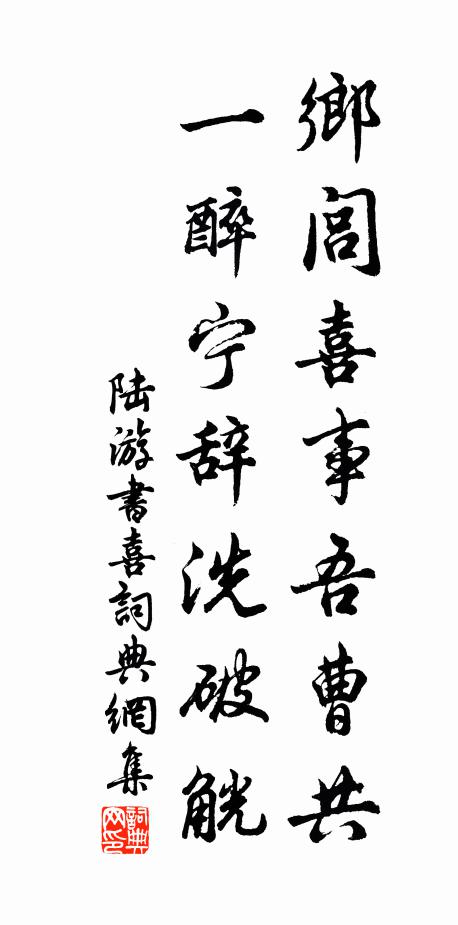 鄉閭喜事吾曹共
一醉宁辞洗破觥
陆游書喜詞典網集
詞典网印